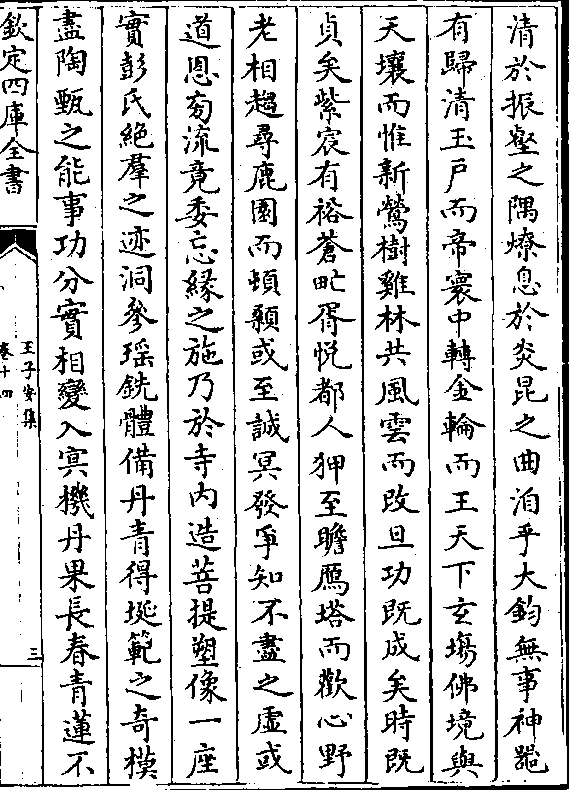 清於振壑之隅燎息於炎昆之曲洎乎大鈞無事神器
有歸清玉戸而帝寰中轉金輪而王天下玄場佛境與
天壤而惟新鶯樹雞林共風雲而攺旦功既成矣時既
貞矣紫宸有裕蒼甿胥悅都人狎至瞻鴈塔而歡心野
老相趨尋鹿園而頓顙或至誠冥發爭知不盡之虛或
道恩匆流竟委忘緣之施乃於寺内造菩提塑像一座
實彭氏絶羣之迹洞參瑶銑體備丹青得埏範之奇模
盡陶甄之能事功分實相變入㝠機丹果長春青蓮不
欽定四庫全書
王子安集
卷十四
三